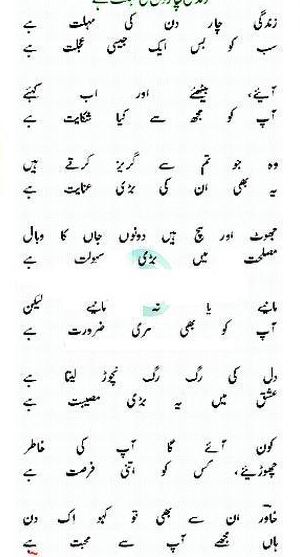 زندگی چار دن کی مہلت ہے
سب کو بس ایک جیسی عجلت ہے
آیئے، بیٹھئے اور اب کہئے
آپ کو مجھ سے کیا شکایت ہے
وہ جو تم سے گریز کرتے ہیں
یہ بھی ان کی بڑی عنایت ہے
جھوٹ اور سچ ہیں دونوں جاں کا وبال
مصلحت میں بڑی سہولت ہے
مانیے یا نہ مانیے لیکن
آپ کو بھی مری ضرورت ہے
دل کی رگ رگ نچوڑ لیتا ہے
عشق میں یہ بڑی مصیبت ہے
کون آئے گا آپ کی خاطر
چھوڑیئے، کس کو اتنی فرصت ہے
خاور ان سے بھی تو کہو اک دن
ہاں مجھے آپ سے محبت ہے